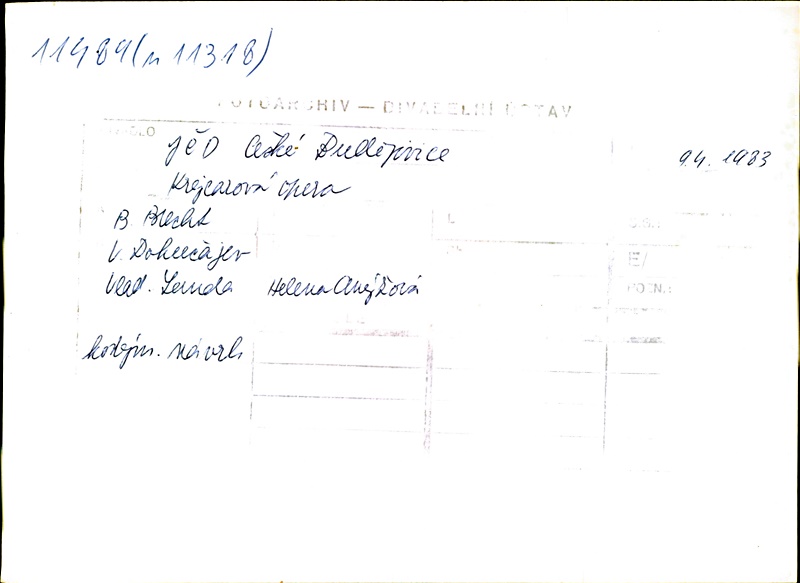 11489 (n 11318)
FOTOARCHIV — DIVADELNÍ ÚSTAV
JčD České Budějovice 9.4. 1983
Krejcarová opera
B. Brecht
V. Dokučajev
Vlad. Landa Helena Anýžová
kostým. návrh